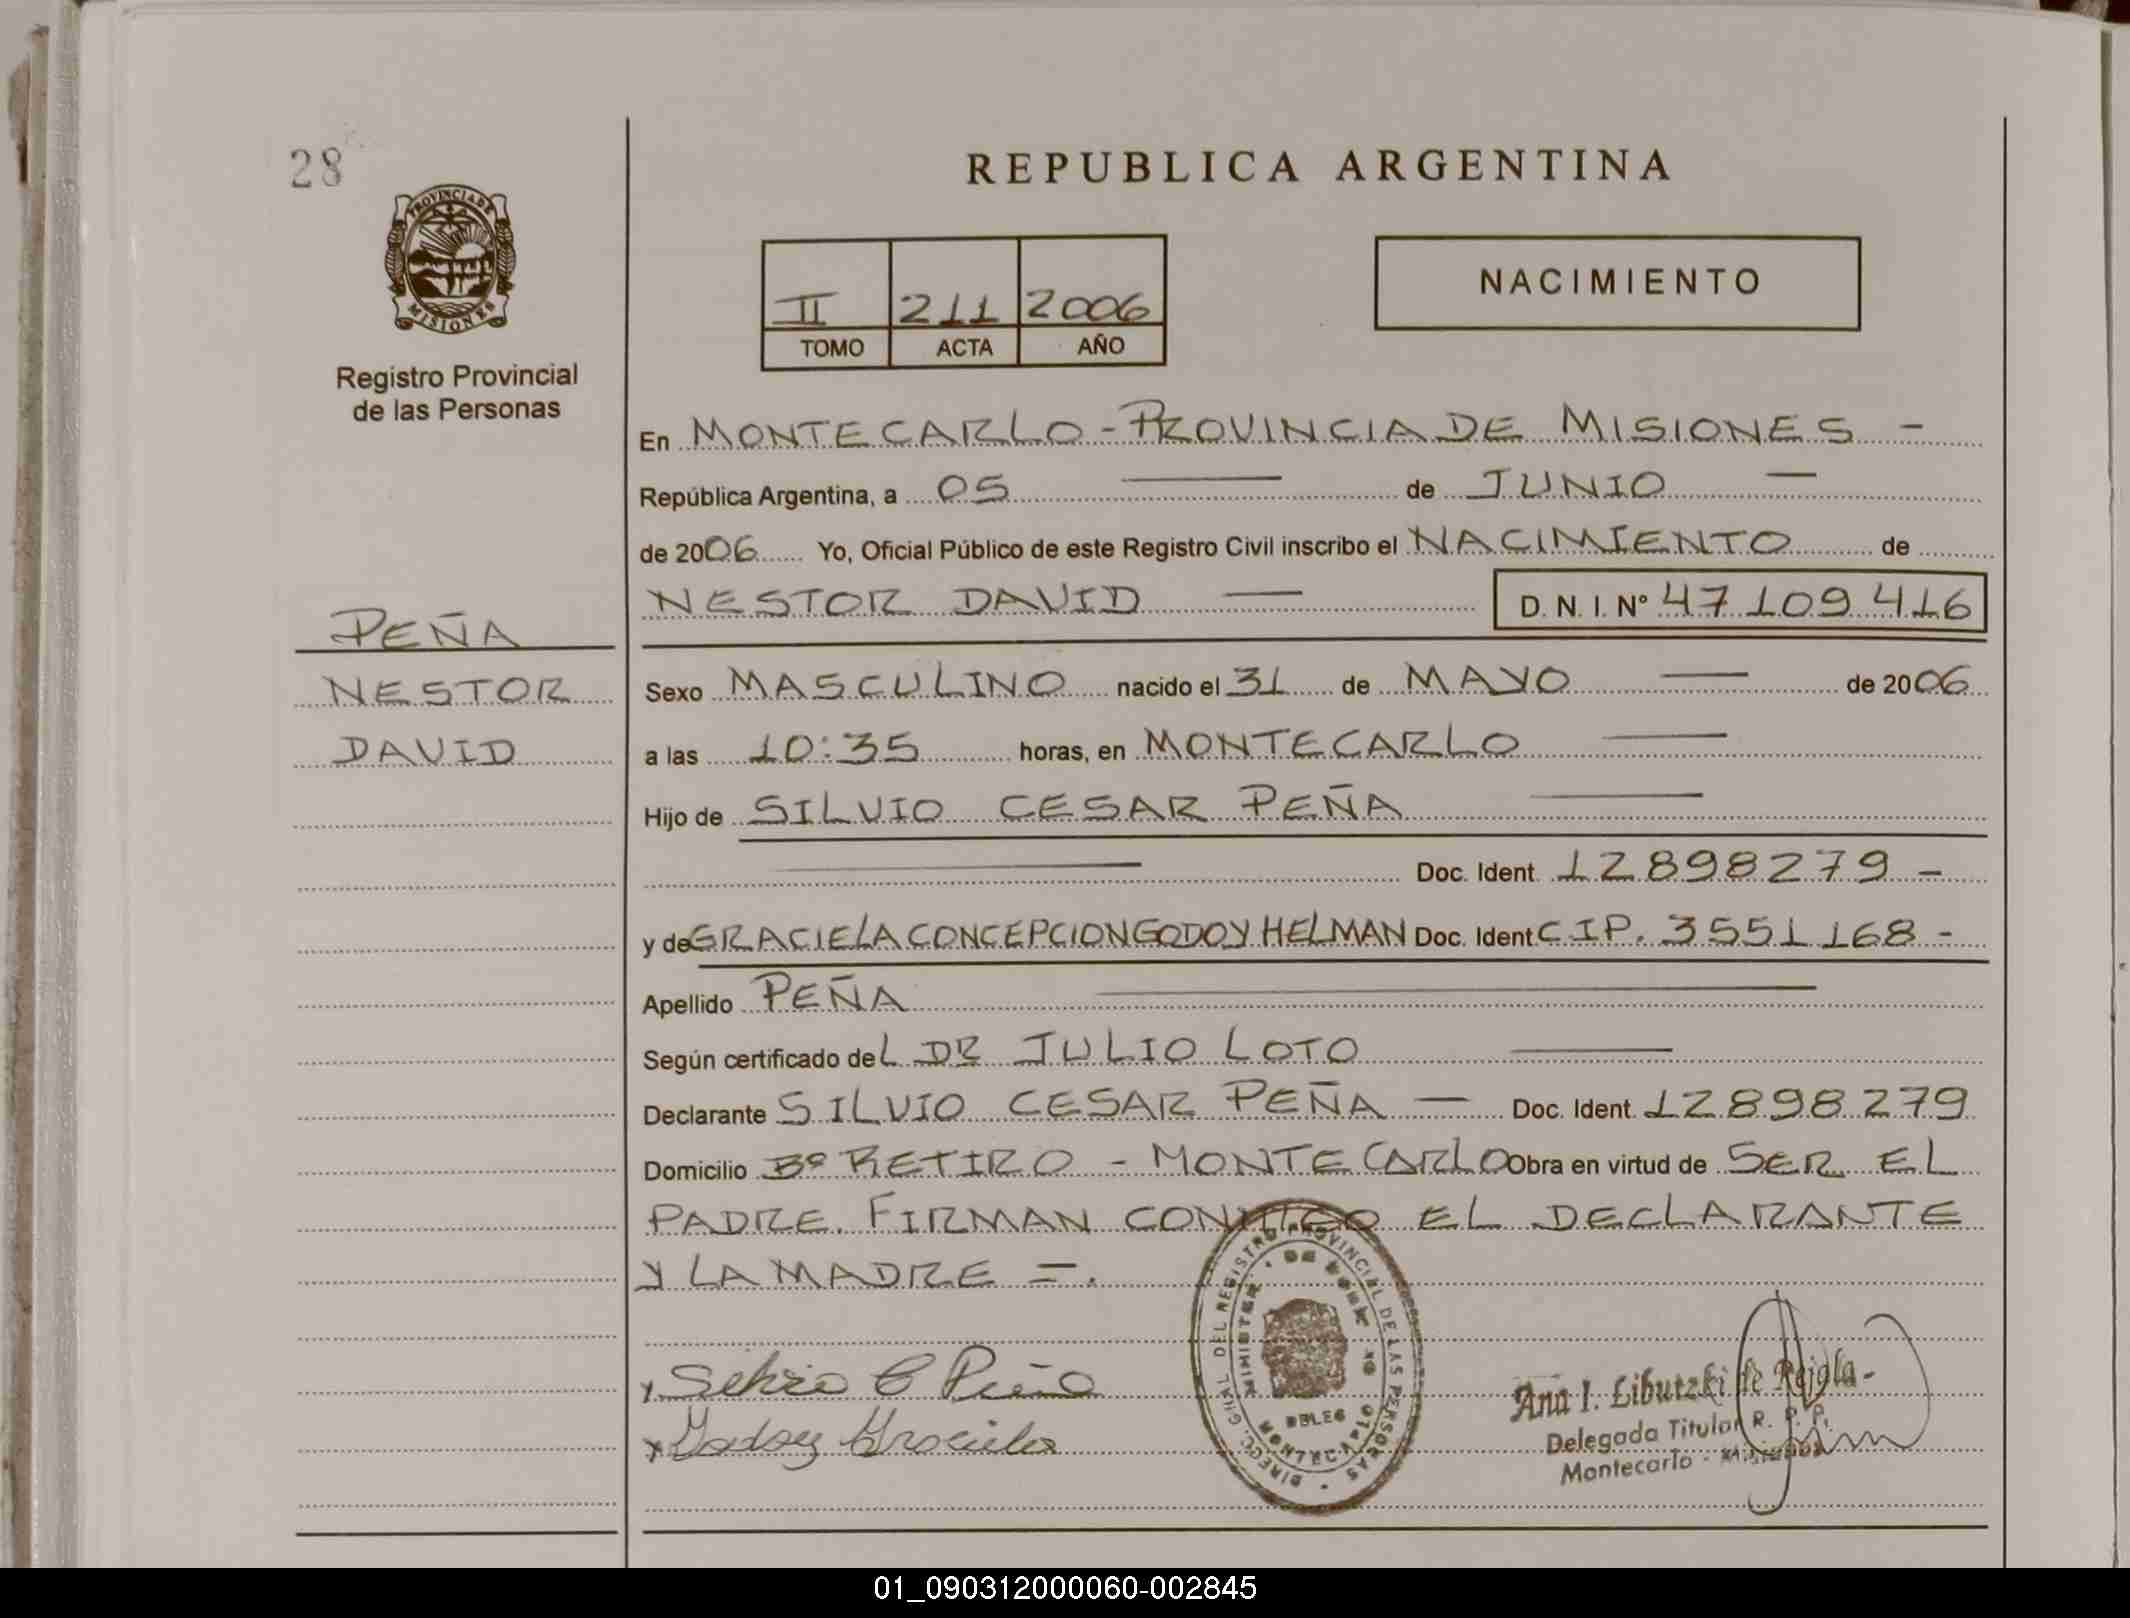 28
PROVINCIA DE
MISIONES
Registro Provincial
de las Personas
REPUBLICA ARGENTINA
II 211 2006
TOMO ACTA AÑO
NACIMIENTO
En MONTECARLO - PROVINCIA DE MISIONES -
República Argentina, a 05 — de JUNIO —
de 2006 Yo, Oficial Público de este Registro Civil inscribo el NACIMIENTO de
NESTOR DAVID — D. N. I. Nº 47109416
PEÑA
NESTOR
DAVID
Sexo MASCULINO nacido el 31 de MAYO — de 2006
a las 10:35 horas, en MONTECARLO —
Hijo de SILVIO CESAR PEÑA —
— Doc. Ident. 12898279 -
y de GRACIELA CONCEPCION GODOY HELMAN Doc. Ident C.I.P. 3551168 -
Apellido PEÑA —
Según certificado del DR JULIO LOTO —
Declarante SILVIO CESAR PEÑA — Doc. Ident. 12898279
Domicilio Bº RETIRO - MONTECARLO Obra en virtud de SER EL
PADRE. FIRMAN CONMIGO EL DECLARANTE
Y LA MADRE =.
DIRECC. GRAL. DEL REGISTRO PROVINCIAL DE LAS PERSONAS
MINISTER. DE
DELEG
MONTECARLO
x Silvio C Peña
x Godoy Graciela
Ana I. Libutzki de Rejala
Delegada Titular R. P. P.
Montecarlo - Misiones
01_090312000060-002845